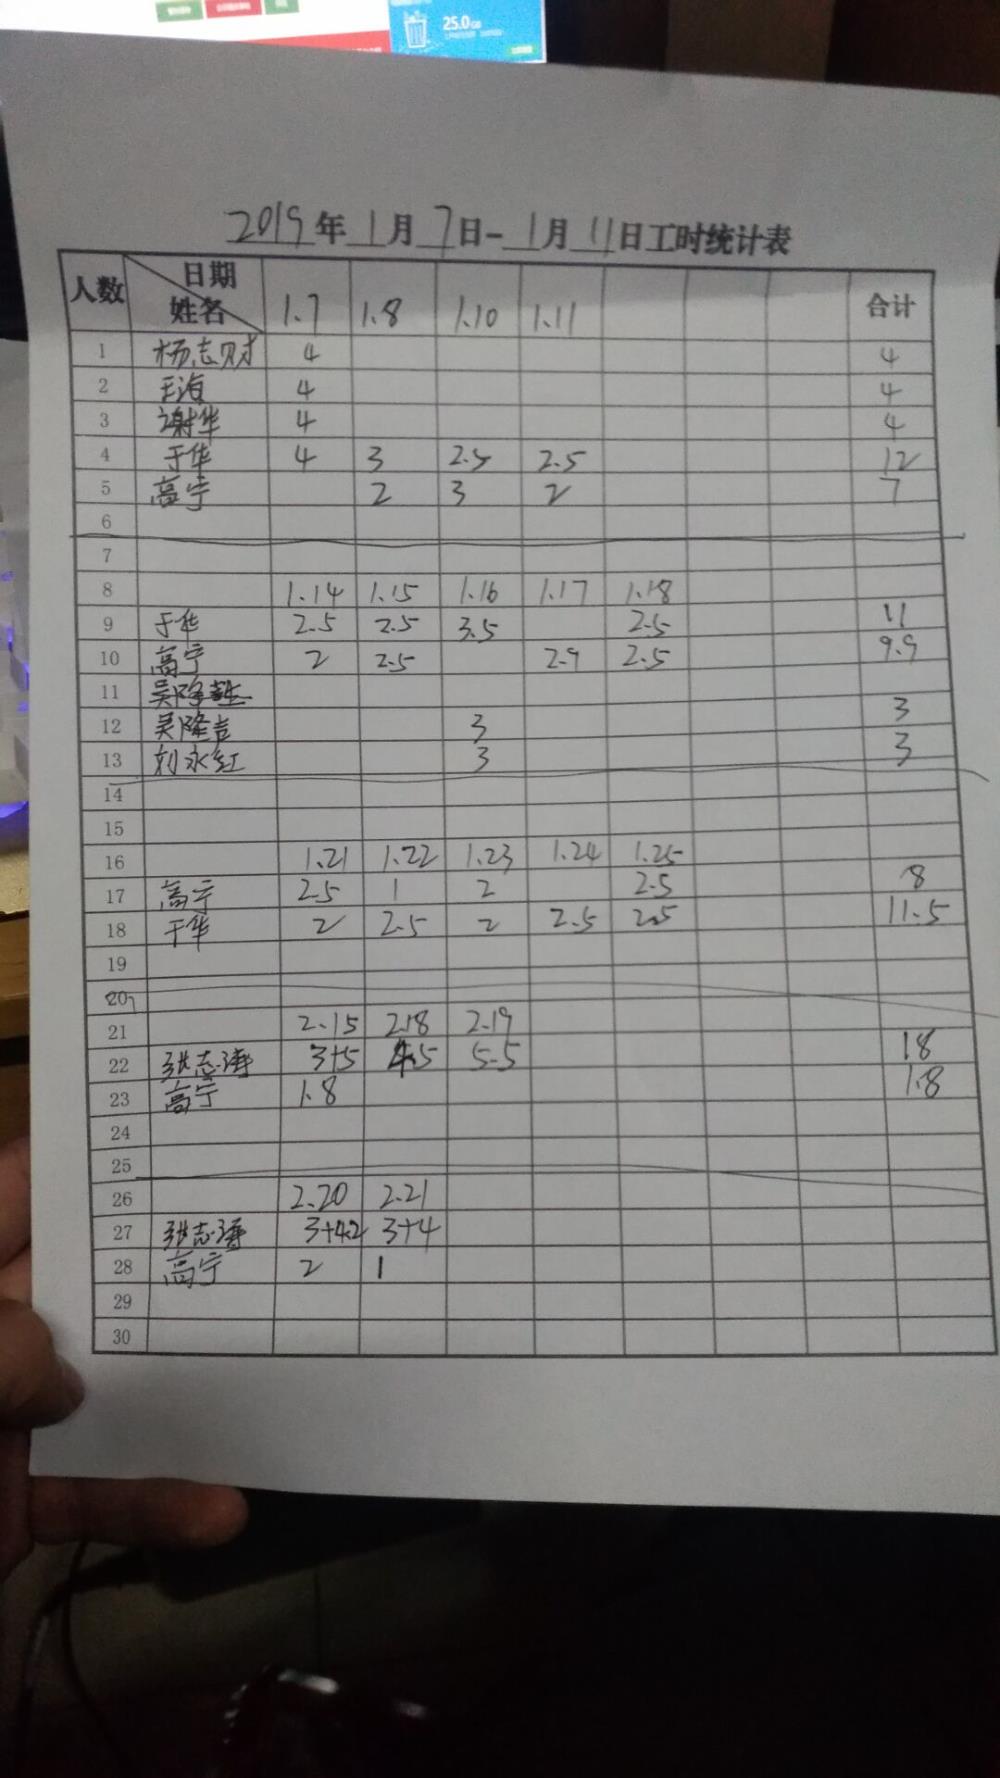 25.0GB
2019年1月7日-1月11日工时统计表
人数 日期 姓名 1.7 1.8 1.10 1.11 合计
1 杨志财 4 4
2 王海 4 4
3 谢华 4 4
4 于华 4 3 2.5 2.5 12
5 高宁 2 3 2 7
6
7
8 1.14 1.15 1.16 1.17 1.18
9 于华 2.5 2.5 3.5 2.5 11
10 高宁 2 2.5 2.9 2.5 9.9
11 吴隆
12 吴隆吉 3 3
13 刘永红 3 3
14
15
16 1.21 1.22 1.23 1.24 1.25
17 高宁 2.5 1 2 2.5 8
18 于华 2 2.5 2 2.5 2.5 11.5
19
20
21 2.15 2.18 2.19
22 张志涛 3+5 4.5 5.5 18
23 高宁 1.8 1.8
24
25
26 2.20 2.21
27 张志涛 3+4.2 3+4
28 高宁 2 1
29
30